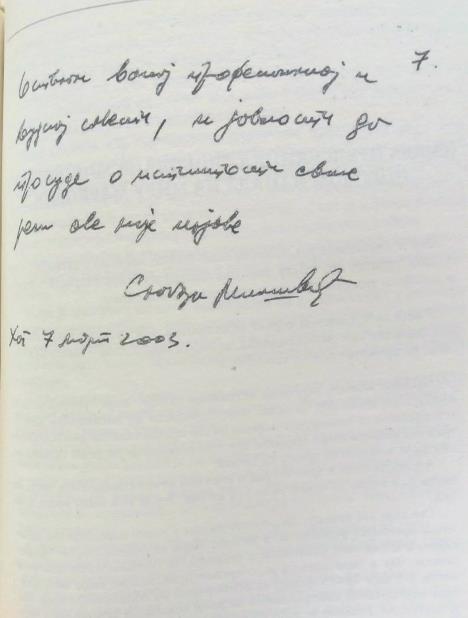 вашој професионалној и 7.
људској савести, и јавности да
просуде о истинитости сваке
речи ове моје изјаве
Слободан Милошевић
Хаг 7 март 2003.